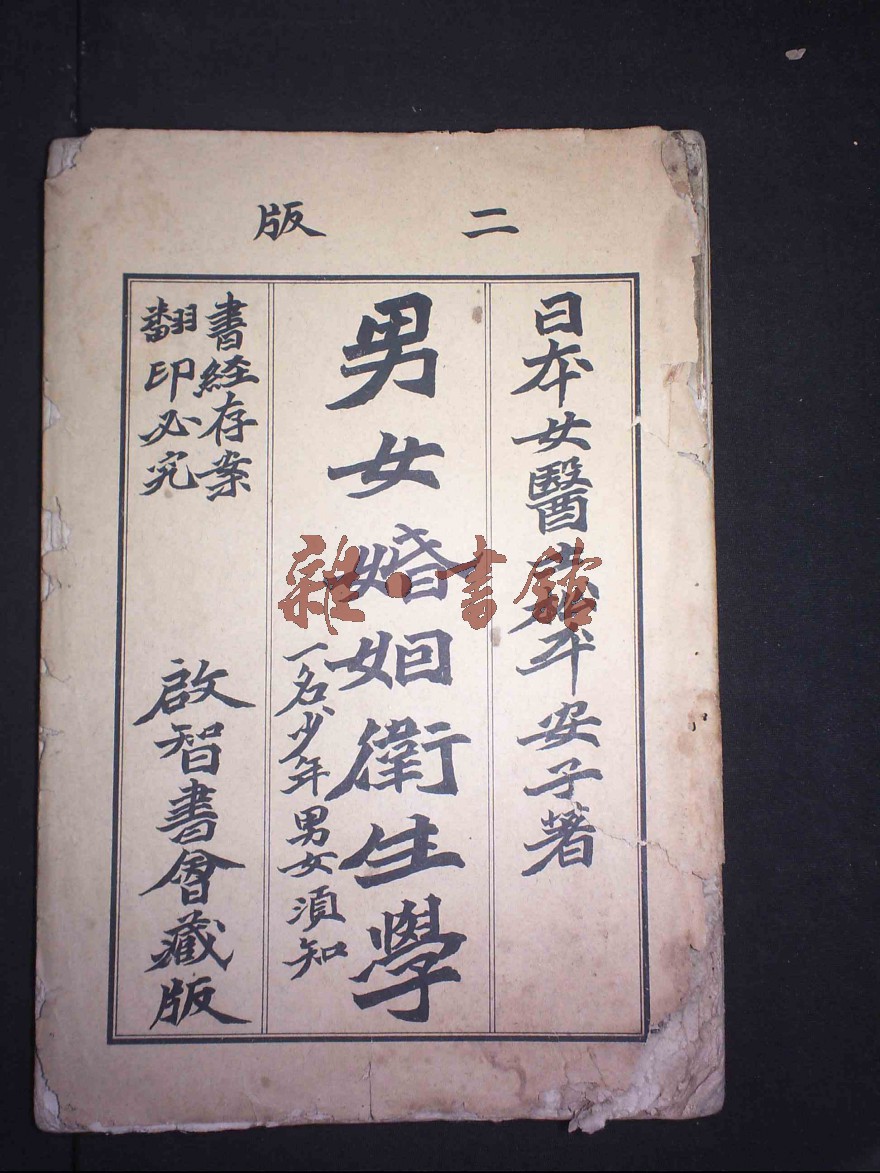 二版
日本女醫松平安子著
男女婚姻衛生學
一名少年男女湏知
書経存案
翻印必究
啟智書會藏版
雜·書館